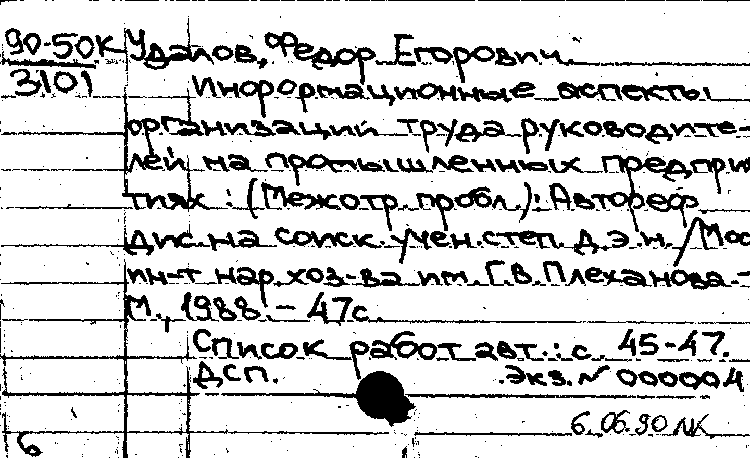 90-50К Удалов, Федор Егорович.
3101
Информационные аспекты
организаций труда руководите-
лей на промышленных предпри
тиях : (Межотр. пробл.): Автореф.
дис. на соиск. учен. степ. д.э.н. / Мос
ин-т нар. хоз-ва им. Г.В. Плеханова.-
М., 1988. - 47с.
Список работ авт.: с. 45-47.
ДСП. .Экз. N 000004
6.06.90
6